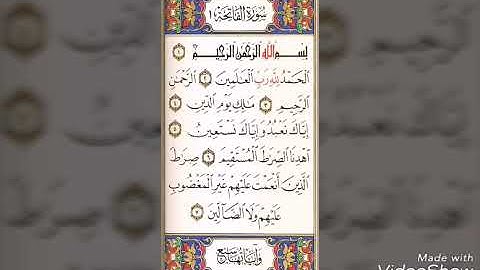 سُورَةُ الْفَاتِحَةِ ١
بِسْمِ اللَّهِ الرَّحْمَٰنِ الرَّحِيمِ ١
الْحَمْدُ لِلَّهِ رَبِّ الْعَالَمِينَ ٢ الرَّحْمَٰنِ
الرَّحِيمِ ٣ مَالِكِ يَوْمِ الدِّينِ ٤
إِيَّاكَ نَعْبُدُ وَإِيَّاكَ نَسْتَعِينُ ٥
اهْدِنَا الصِّرَاطَ الْمُسْتَقِيمَ ٦ صِرَاطَ
الَّذِينَ أَنْعَمْتَ عَلَيْهِمْ غَيْرِ الْمَغْضُوبِ
عَلَيْهِمْ وَلَا الضَّالِّينَ ٧
وَآيَاتُهَا سَبْعٌ
Made with
VideoShow